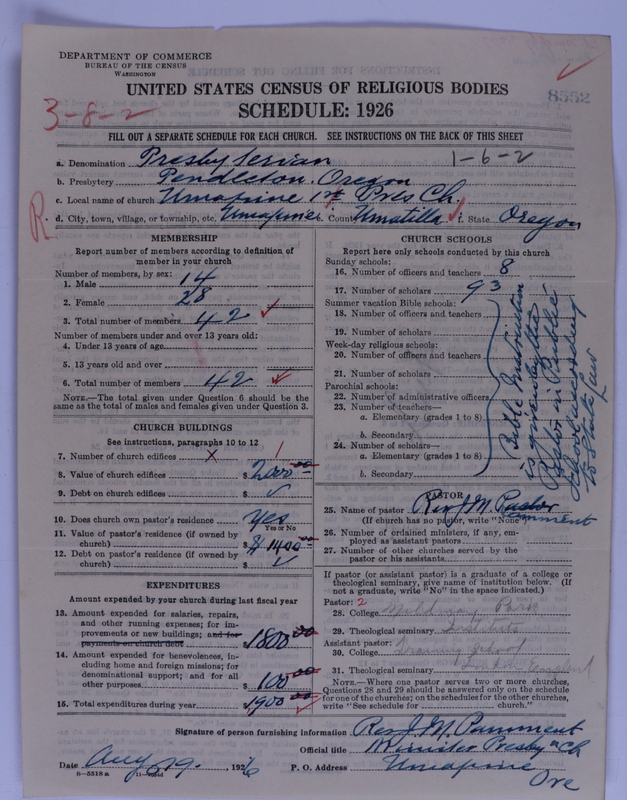 DEPARTMENT OF COMMERCE
BUREAU OF THE CENSUS
WASHINGTON
UNITED STATES CENSUS OF RELIGIOUS BODIES
8552
SCHEDULE: 1926
3-8-2
FILL OUT A SEPARATE SCHEDULE FOR EACH CHURCH. SEE INSTRUCTIONS ON THE BACK OF THIS SHEET
a. Denomination Presbyterian 1-6-2
b. Presbytery Pendleton Oregon
c. Local name of church Umapine 1st Pres Ch.
R. d. City, town, village, or township, etc. Umapine e. County Umatilla f. State Oregon
MEMBERSHIP
Report number of members according to definition of
member in your church
Number of members, by sex:
1. Male 14
2. Female 28
3. Total number of members 42
Number of members under and over 13 years old:
4. Under 13 years of age
5. 13 years old and over
6. Total number of members 42
NOTE.—The total given under Question 6 should be
same as the total of males and females given under Question 3.
CHURCH BUILDINGS
See instructions, paragraphs 10 to 12
7. Number of church edifices x 1
8. Value of church edifices $2000.00
9. Debt on church edifices $
10. Does church own pastor's residence Yes
Yes or No
11. Value of pastor's residence (if owned by
church) $1400.00
12. Debt on pastor's residence (if owned by
church) $
EXPENDITURES
Amount expended by your church during last fiscal year
13. Amount expended for salaries, repairs,
and other running expenses; for im-
provements or new buildings; and for
payments on church debt 1800.00
14. Amount expended for benevolences, in-
cluding home and foreign missions; for
denominational support; and for all
other purposes 100.00
15. Total expenditures during year $1900.00
CHURCH SCHOOLS
Report here only schools conducted by this church
Sunday schools:
16. Number of officers and teachers 8
17. Number of scholars 93
Summer vacation Bible schools:
18. Number of officers and teachers
19. Number of scholars
Week-day religious schools:
20. Number of officers and teachers
21. Number of scholars
Parochial schools:
22. Number of administrative officers
23. Number of teachers—
a. Elementary (grades 1 to 8)
b. Secondary
24. Number of scholars—
a. Elementary (grades 1 to 8)
b. Secondary
Bible Instruction
is given by the
Pastor in Public
School according
to State Law
PASTOR
25. Name of pastor Rev J. M. Pastor
Pamment
(If church has no pastor, write "None")
26. Number of ordained ministers, if any, em-
ployed as assistant pastors
27. Number of other churches served by the
pastor or his assistants
If pastor (or assistant pastor) is a graduate of a college or
theological seminary, give name of institution below. (If
not a graduate, write "No" in the space indicated.)
Pastor: 2
28. College Mildmay Park
29. Theological seminary Institute
Assistant pastor:
30. College Training School
31. Theological seminary London England
NOTE.—Where one pastor serves two or more churches,
Questions 28 and 29 should be answered only on the schedule
for one of the churches; on the schedules for the other churches,
write "See schedule for church."
Signature of person furnishing information Rev J. M. Pamment
Official title Minister Presbyn Ch
Date Aug 19, 1926 P. O. Address Umapine
Ore
8—5518 a